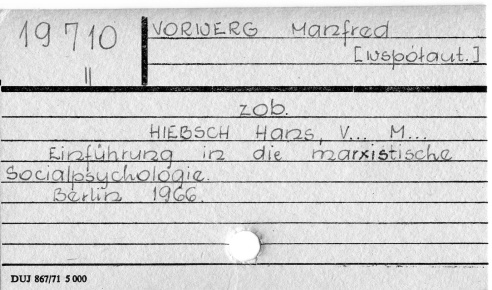 19710
II
VORWERG Manfred
[współaut.]
zob.
HIEBSCH Hans, V... M...
Einführung in die marxistische
Socialpsychologie.
Berlin 1966.
DUJ 867/71 5 000